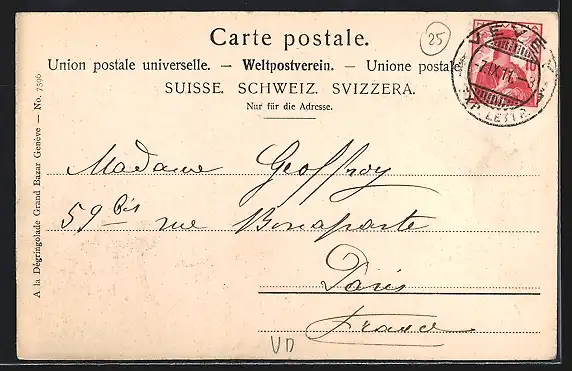 Carte postale.
25
Union postale universelle. — Weltpostverein. — Unione postale
SUISSE. SCHWEIZ. SVIZZERA.
Nur für die Adresse.
VEVEY
LETTR.
Madame Geoffroy
59 bis rue Bonaparte
Paris
France
VD
A la Dégringolade Grand Bazar Genève — No. 7596